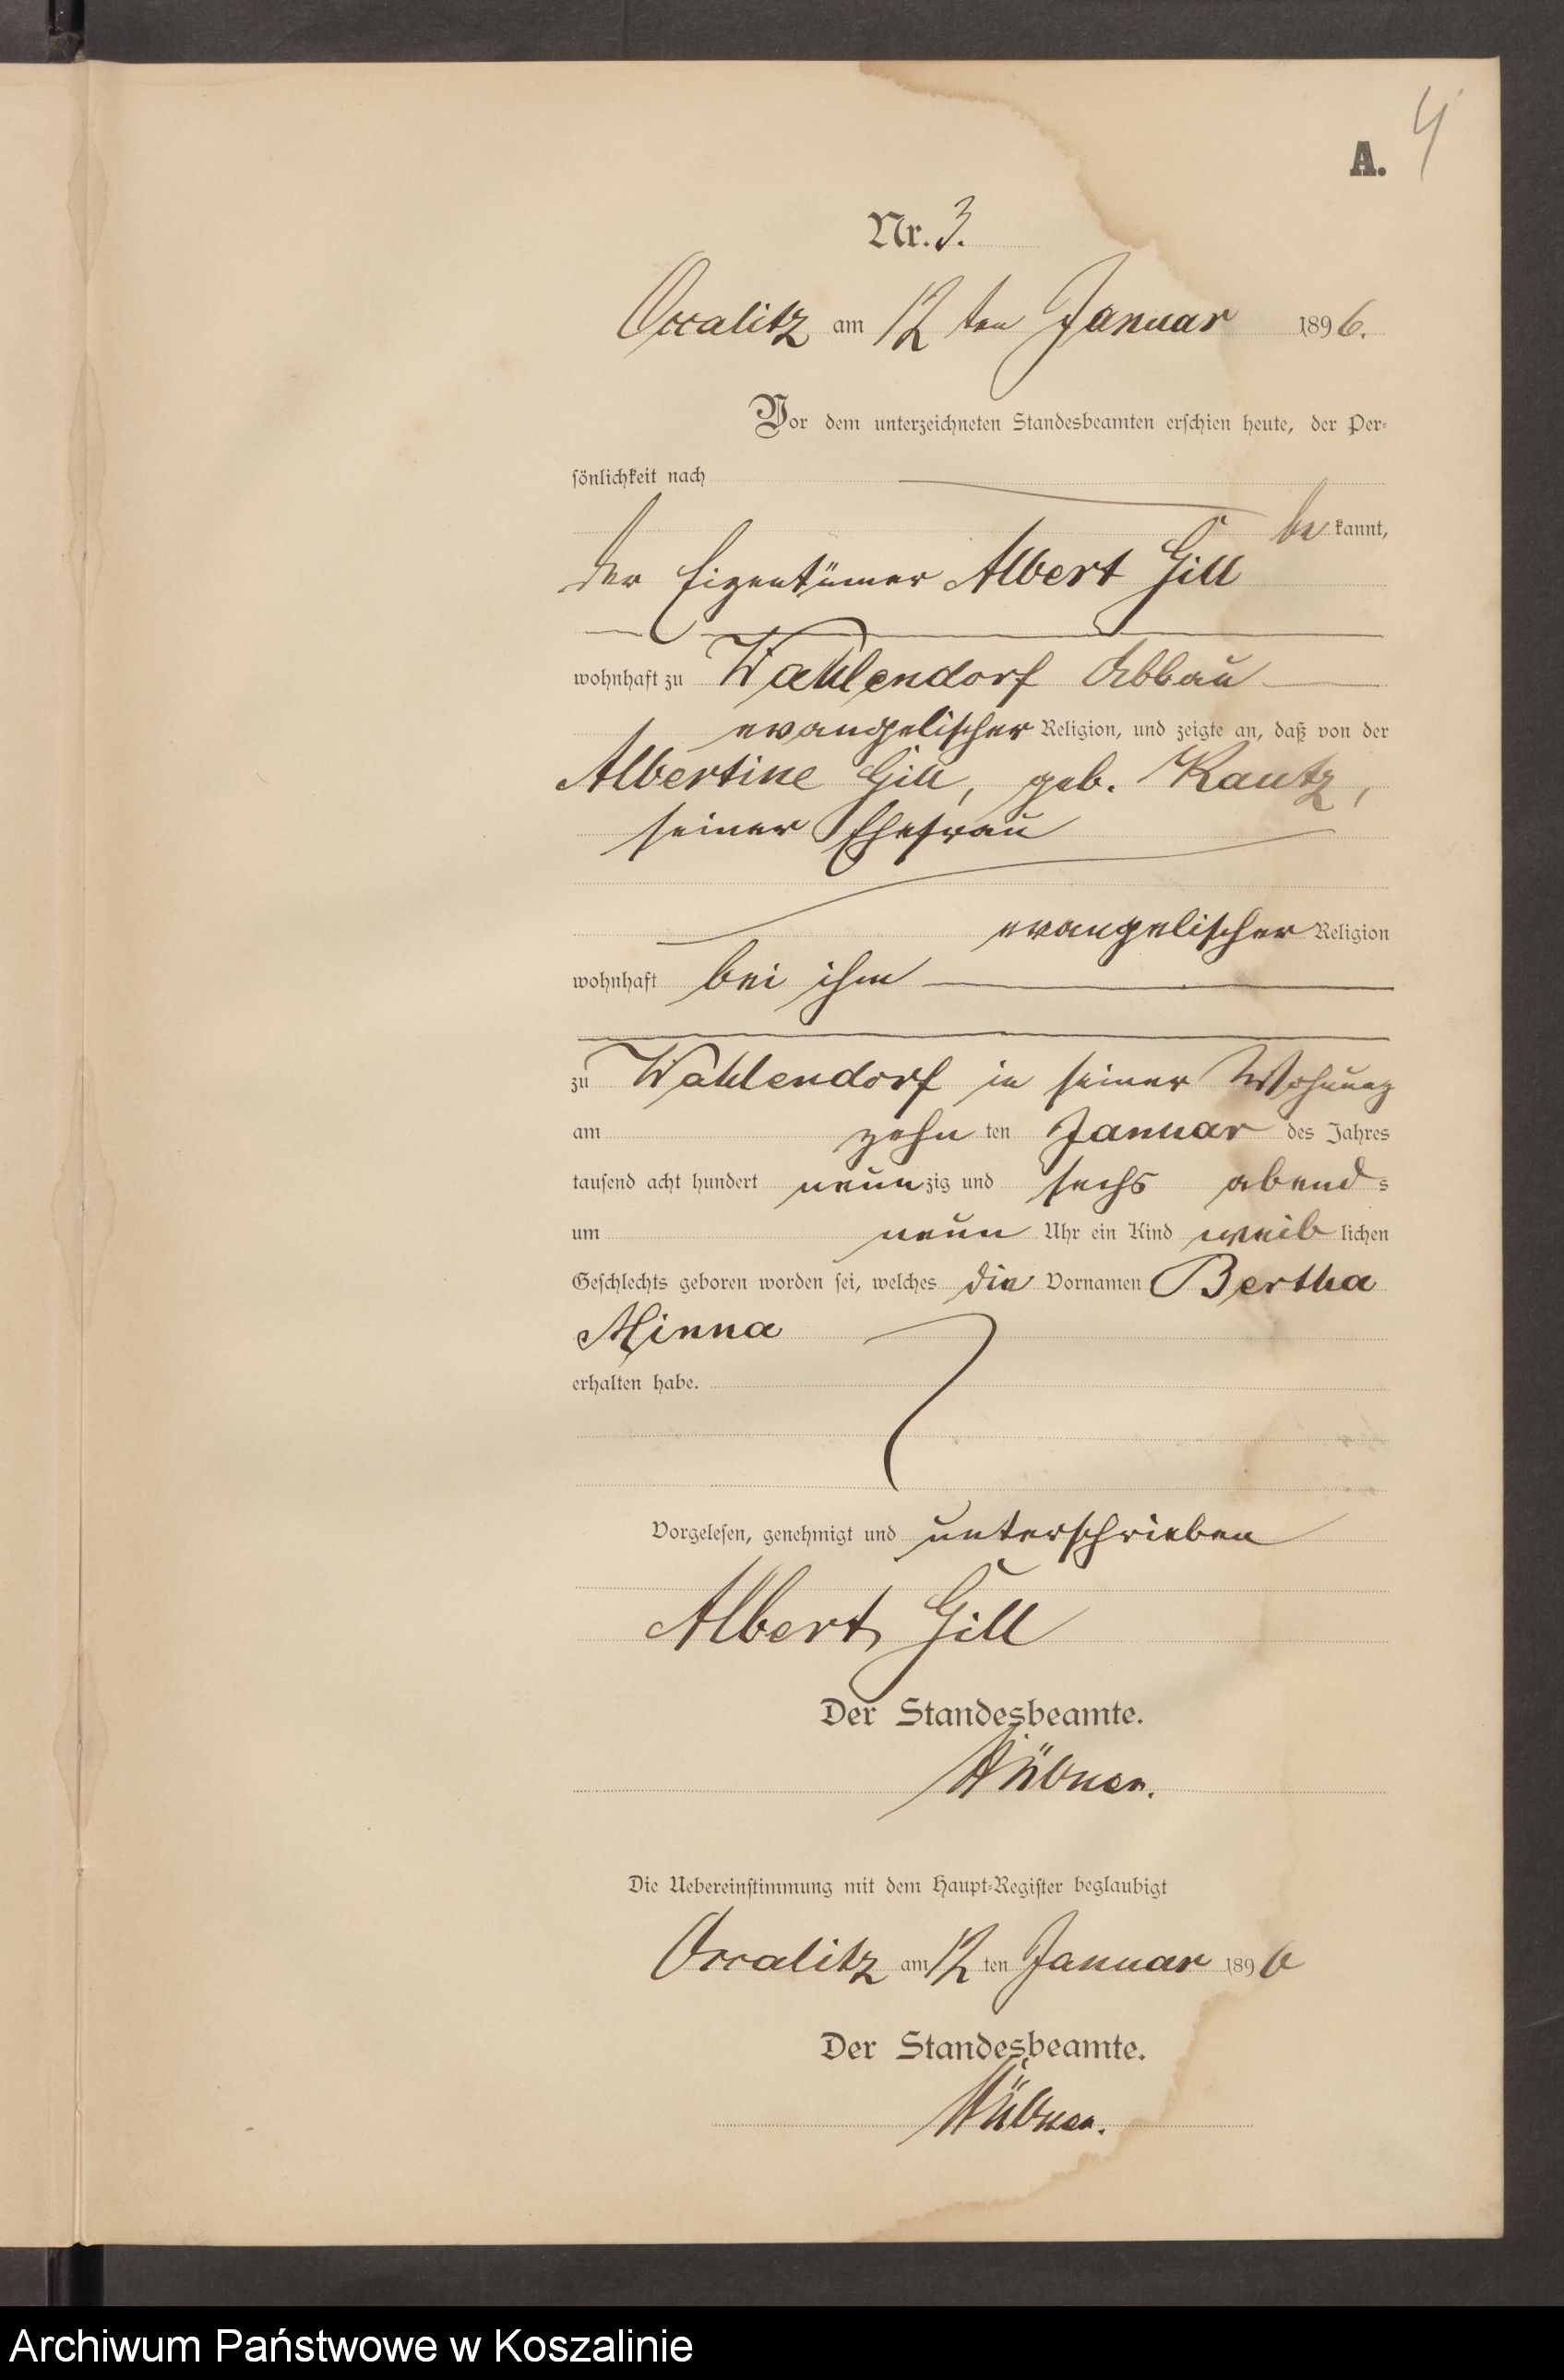 4
A.
Nr. 3.
Occalitz am 12 ten Januar 1896.
Vor dem unterzeichneten Standesbeamten erschien heute, der Per-
sönlichkeit nach
be kannt,
der Eigentümer Albert Gill
wohnhaft zu Wahlendorf Abbau
evangelischer Religion, und zeigte an, daß von der
Albertine Gill, geb. Kautz,
seiner Ehefrau
evangelischer Religion
wohnhaft bei ihm
zu Wahlendorf in seiner Wohnung
am zehn ten Januar des Jahres
tausend acht hundert neun zig und sechs abend s
um neun Uhr ein Kind weib lichen
Geschlechts geboren worden sei, welches die Vornamen Bertha
Minna
erhalten habe.
Vorgelesen, genehmigt und unterschrieben
Albert Gill
Der Standesbeamte.
Hübner.
Die Uebereinstimmung mit dem Haupt-Register beglaubigt
Occalitz am 12 ten Januar 1896
Der Standesbeamte.
Hübner.
Archiwum Państwowe w Koszalinie